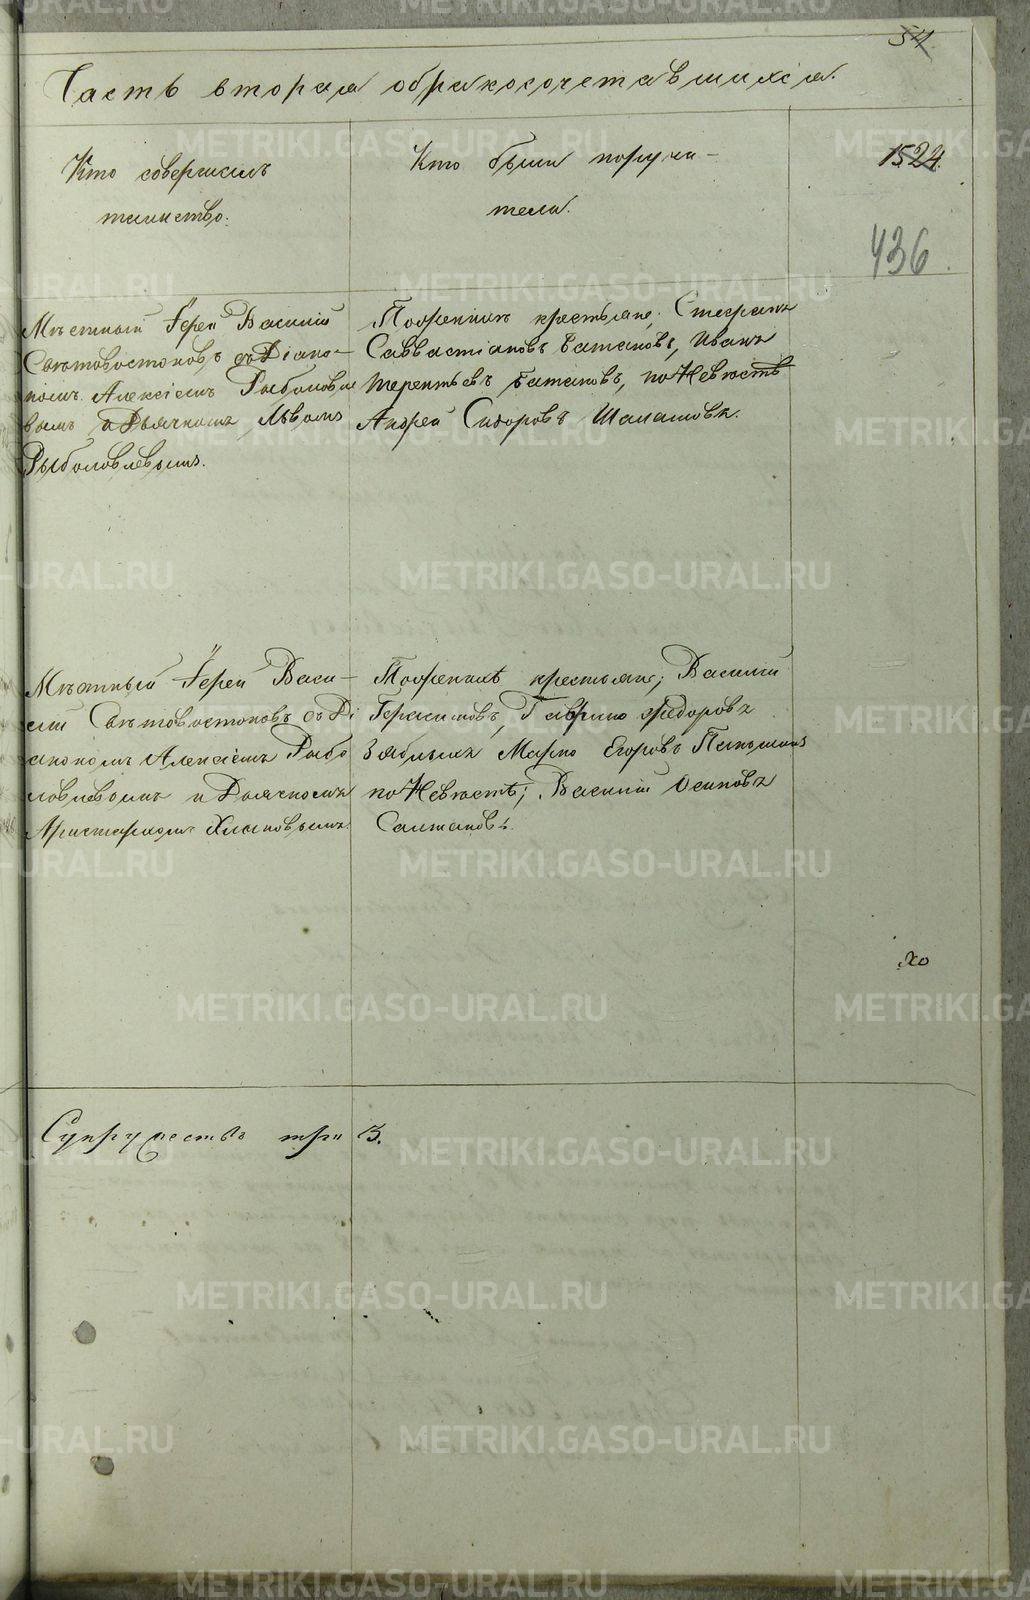 54
Часть вторая о бракосочетавшихся.
Кто совершилъ
таинство.
Кто были поручи-
тели.
1524
436
Мѣстный Іерей Василій
Свѣтовостоковъ съ Діако-
номъ Алексіемъ Рыболовле
вымъ и Дьячкомъ Львомъ
Рыболовлевымъ.
По Женихѣ крестьяне; Стефанъ
Саввастіановъ Батановъ, Иванъ
Терентьевъ Батановъ, по Невѣстѣ
Андрей Сидоровъ Шалашовъ.
Мѣстный Іерей Васи-
лій Свѣтовостоковъ съ Ді
акономъ Алексіемъ Рыбо
ловлевымъ и Дьячкомъ
Аристархомъ Хлыновымъ.
По Женихѣ крестьяне; Василій
Герасимовъ, Гаврило Ѳедоровъ
Зяблыхъ Марко Егоровъ Паньшинъ
по Невѣстѣ; Василій Осиповъ
Салтановъ.
Супружествъ три 3.
METRIKI.GASO-URAL.RU